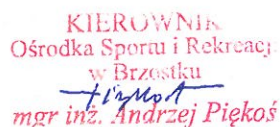 KIEROWNIK
Ośrodka Sportu i Rekreacji
w Brzostku
mgr inż. Andrzej Piękoś